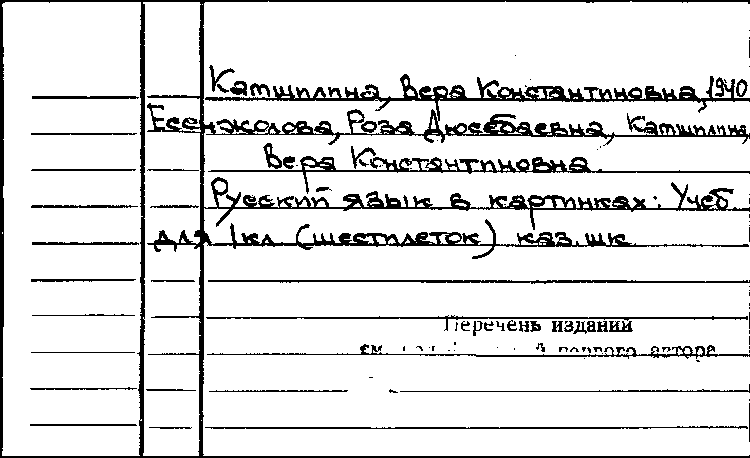 Катшилина, Вера Константиновна, 1940
Есенжолова, Роза Дюсебаевна, Катшилина,
Вера Константиновна.
Русский язык в картинках: Учеб.
для 1кл (шестилеток) каз. шк
Перечень изданий
см. первого автора